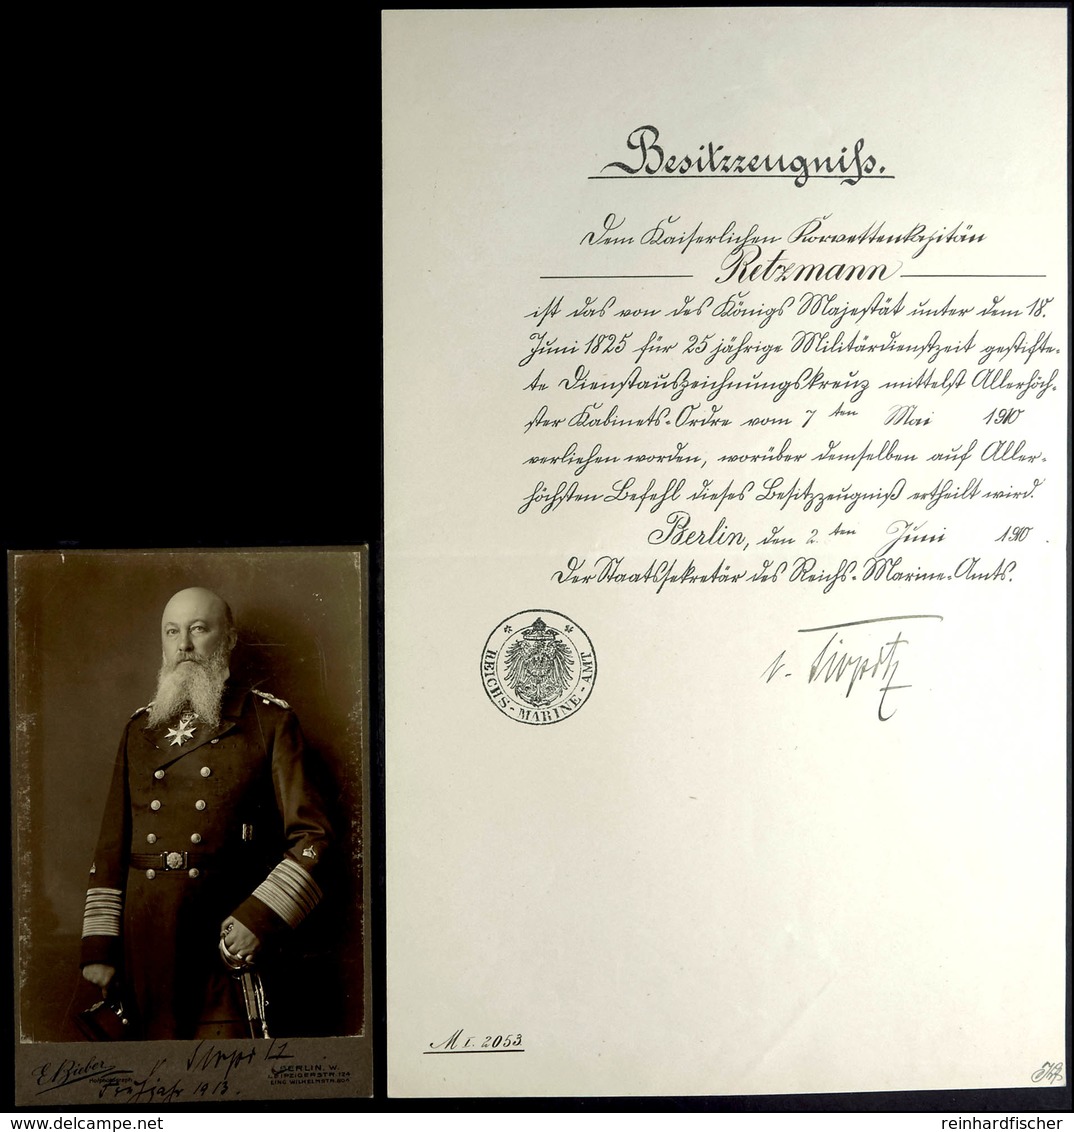 Besitzzeugniß.
Dem Kaiserlichen Korvettenkapitän
Retzmann
ist das von des Königs Majestät unter dem 18.
Juni 1825 für 25 jährige Militärdienstzeit gestifte-
te Dienstauszeichnungskreuz mittelst Allerhöch-
ster Kabinets-Ordre vom 7 ten Mai 1910
verliehen worden, worüber demselben auf Aller-
höchsten Befehl dieses Besitzzeugniß ertheilt wird.
Berlin, den 2. ten Juni 1910.
Der Staatssekretär des Reichs-Marine-Amts.
REICHS-MARINE-AMT
v. Tirpitz
M I. 2053.
v Tirpitz
E. Bieber
Hofphotograph
BERLIN. W.
LEIPZIGERSTR. 126
EING. WILHELMSTR.
Frühjahr 1913.
reinhardfischer